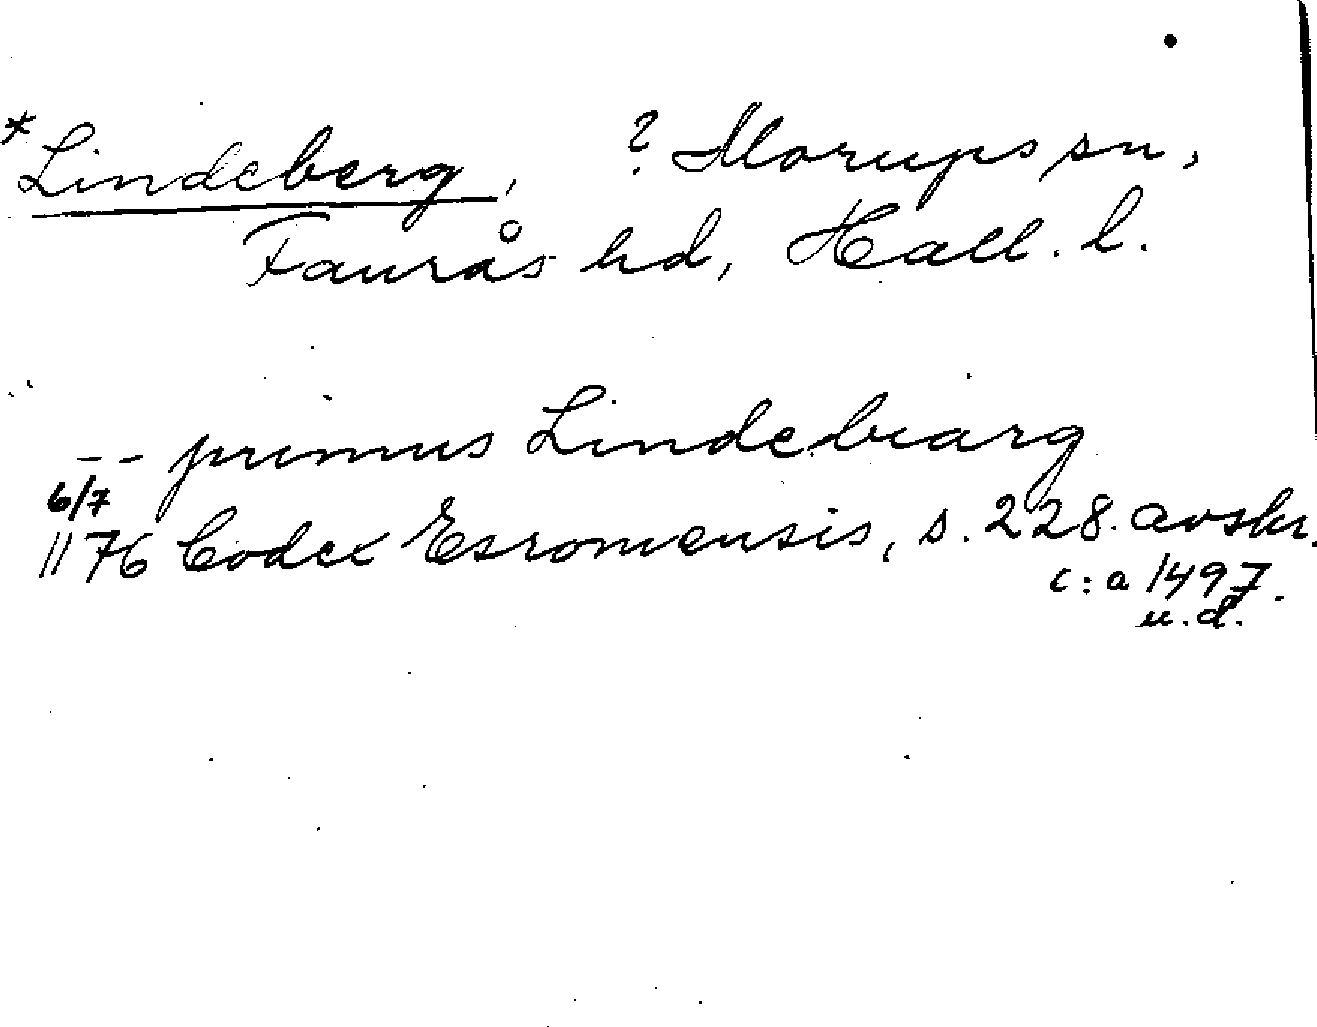 *Lindeberg, ? Morups sn,
Faurås hd, Hall. l.
-- primus Lindebiarg
6/7
1176 Codex Esromensis, s. 228. avskr.
c:a 1497.
u.d.